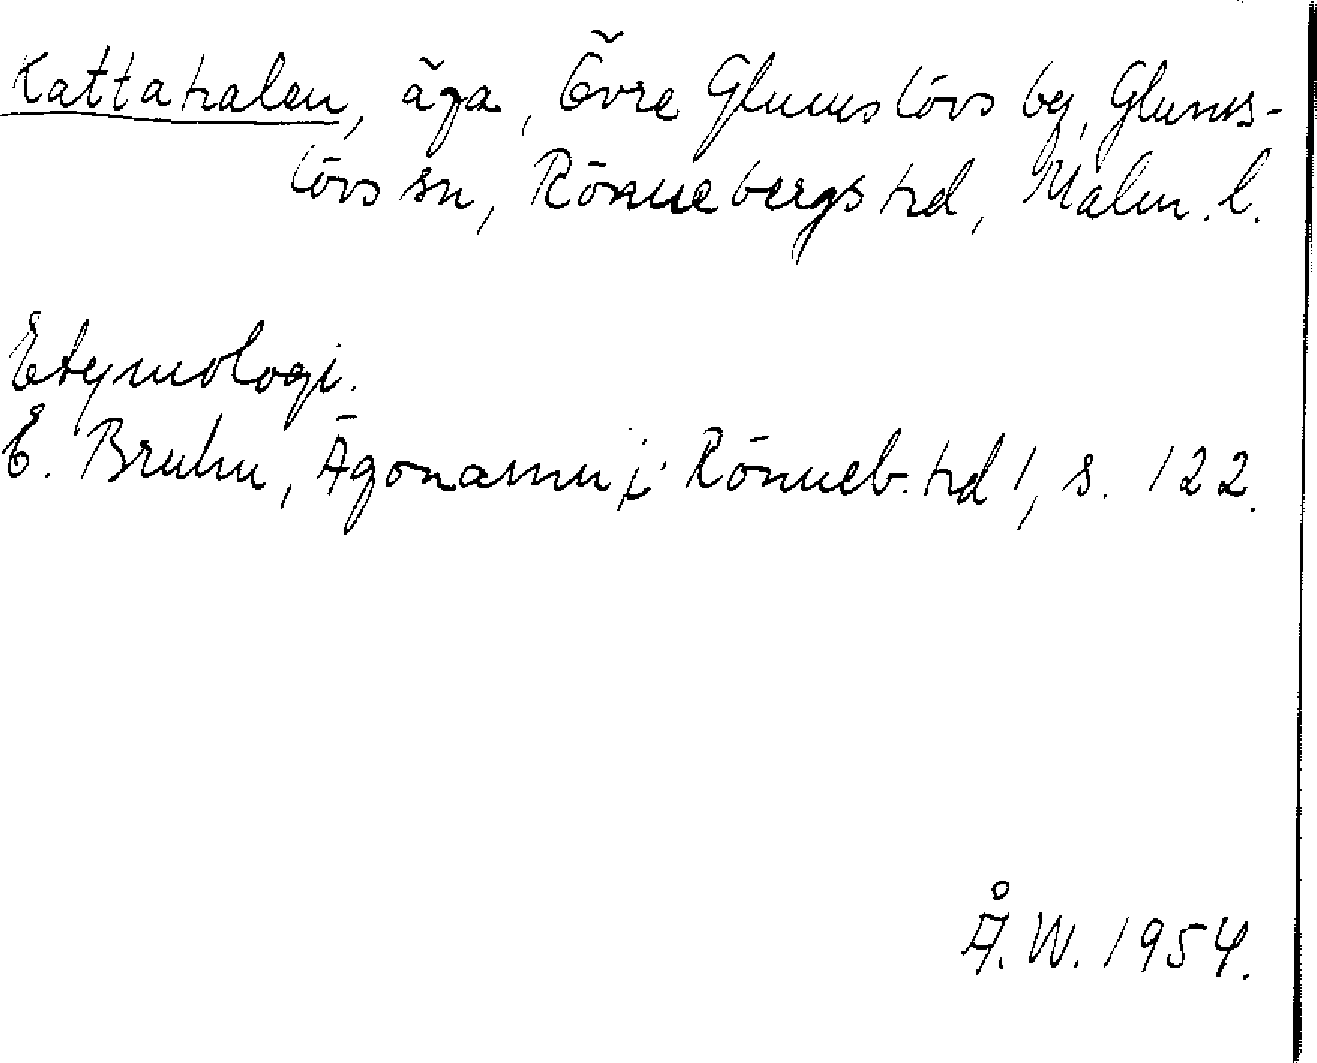 Kattahalen, äga, Övre Glumslövs by, Glums-
lövs sn, Rönnebergs hd, Malm. l.
Etymologi.
E. Bruhn, Ägonamn i Rönneb. hd 1, s. 122.
Å. W. 1954.